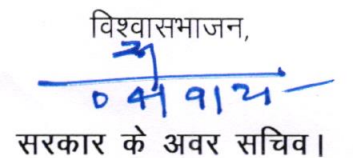 विश्वासभाजन,
सरकार के अवर सचिव।